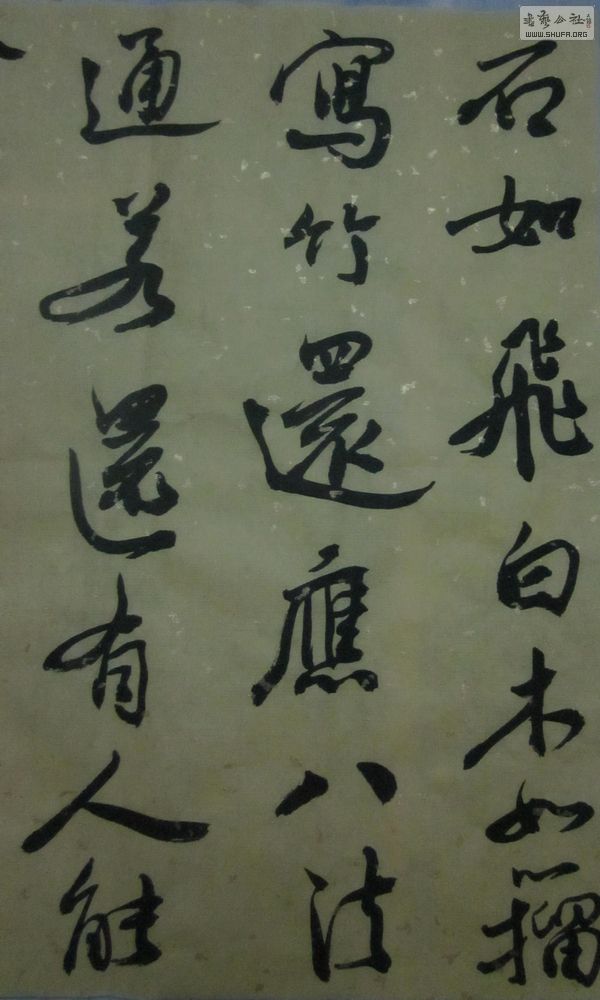 石如飛白木如籀
寫竹還應八法
通若還有人能
書藝公社
WWW.SHUFA.ORG